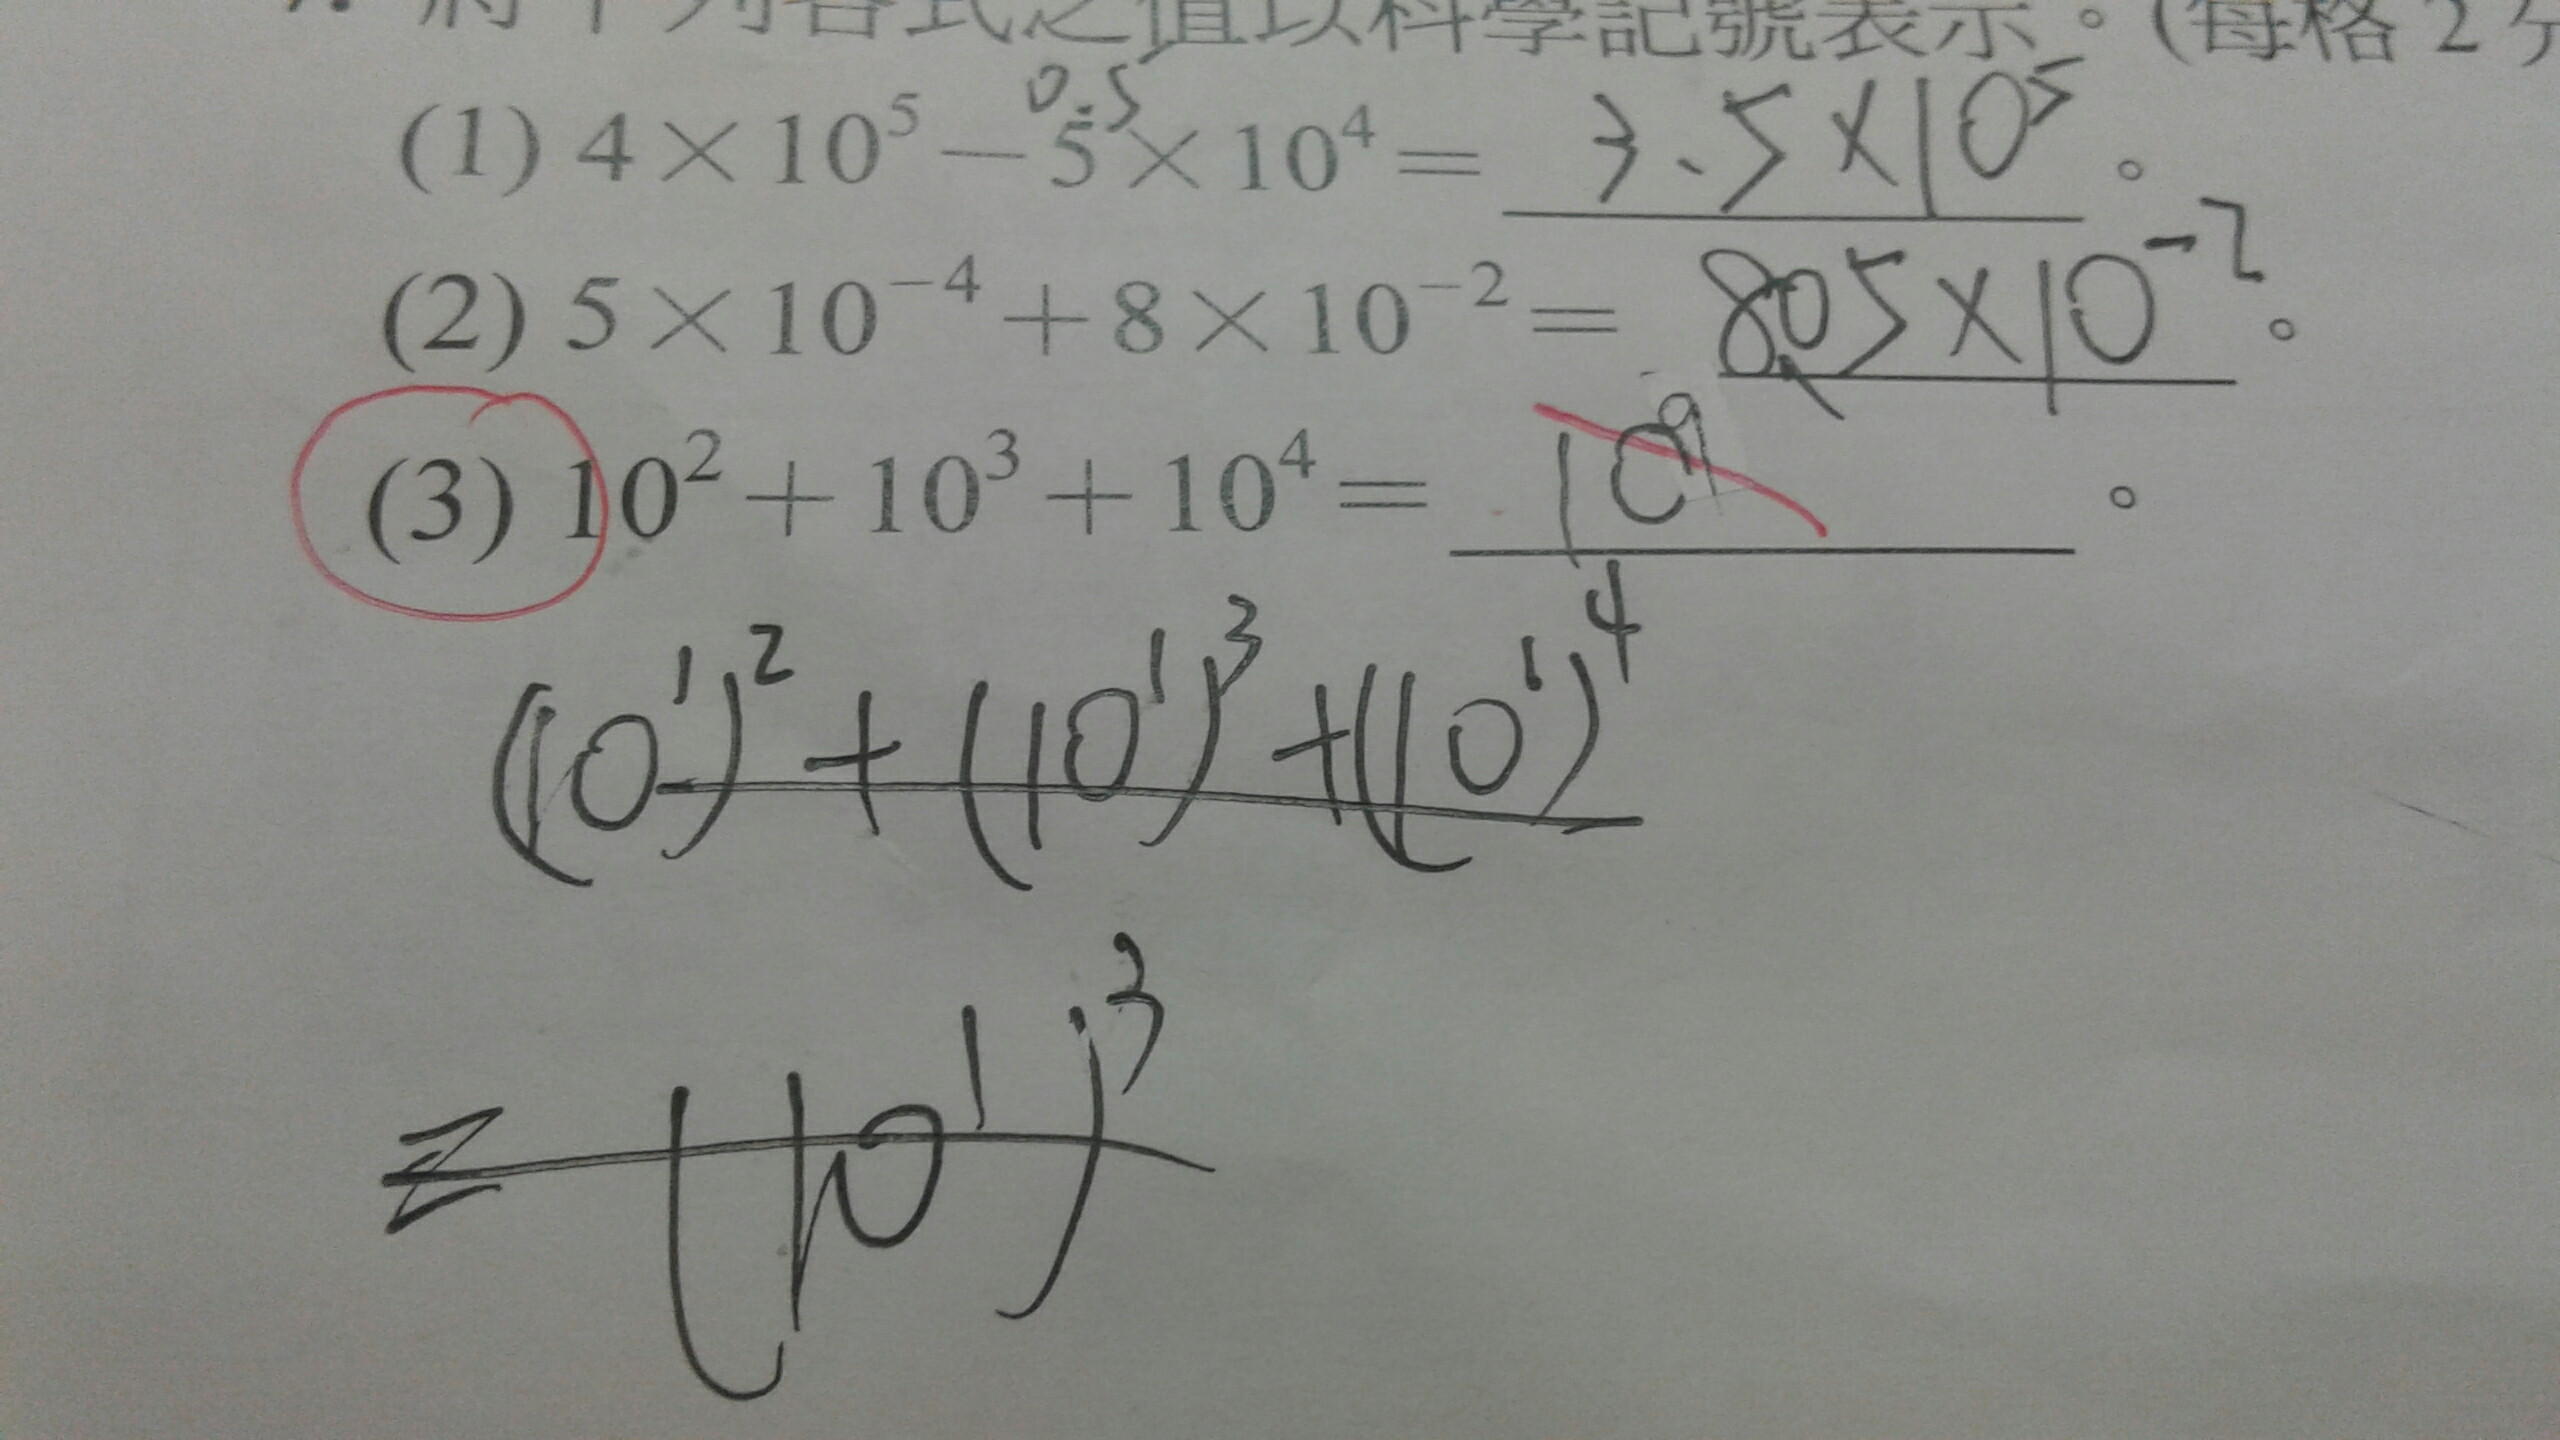 將下列各式之值以科學記號表示。(每格 2
0.5
(1) 4×10⁵－5×10⁴＝ 3.5×10⁵ 。
(2) 5×10⁻⁴＋8×10⁻²＝ 8.05×10⁻² 。
(3) 10²＋10³＋10⁴＝ 10⁹ 。
(10¹)²+(10¹)³+(10¹)⁴
= (10¹)³